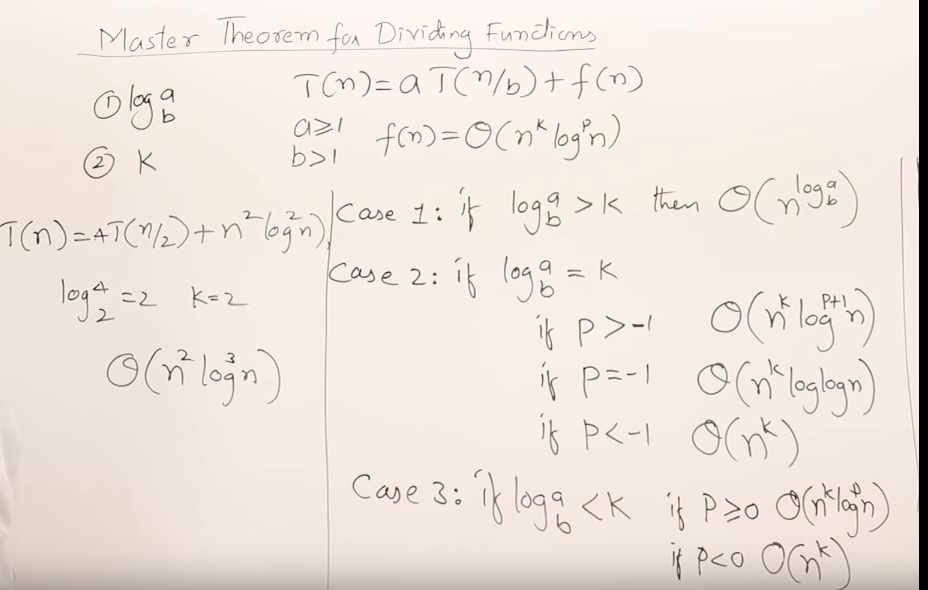 Master Theorem for Dividing Functions
① log_b^a
② K
T(n)=aT(n/b)+f(n)
a≥1
b>1
f(n)=Θ(n^k log^p n)
T(n)=4T(n/2)+n^2 log^2 n
log_2^4=2 K=2
Θ(n^2 log^3 n)
Case 1: if log_b^a >K then Θ(n^{log_b^a})
Case 2: if log_b^a = K
if P>-1 Θ(n^k log^{P+1} n)
if P=-1 Θ(n^k loglogn)
if P<-1 Θ(n^k)
Case 3: if log_b^a <K if P≥0 Θ(n^k log^p n)
if P<0 Θ(n^k)